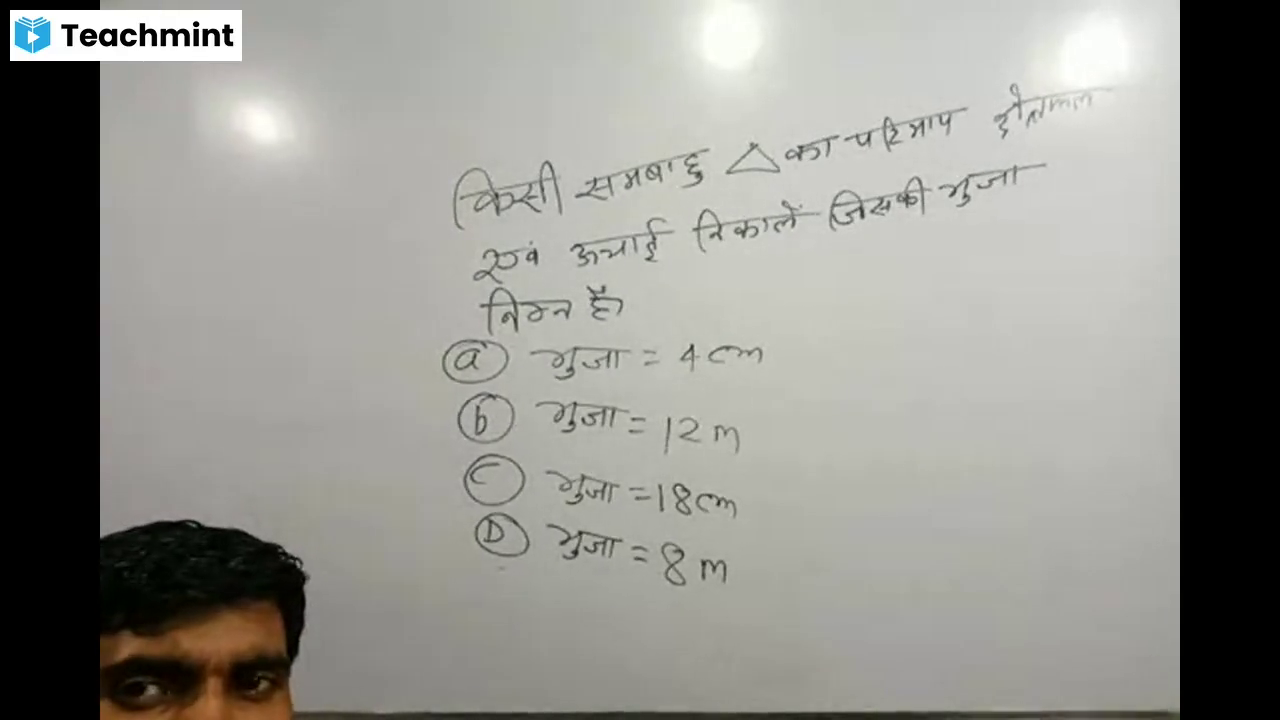 Teachmint
किसी समबाहु △ का परिमाप क्षेत्रफल
एवं ऊचाई निकालें जिसकी भुजा
निम्न है।
(a) भुजा = 4 cm
(b) भुजा = 12 m
(C) भुजा = 18 cm
(D) भुजा = 8 m